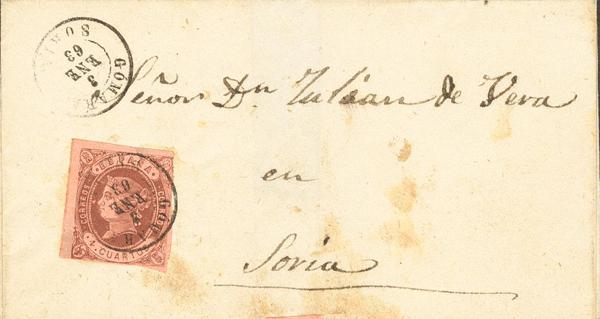 GOMARA
3
ENE
63
SORIA
Señor Dn Julian de Vera
en
Soria
CORREOS ESPAÑA
4 CUARTOS
GOMAR
ENE
63